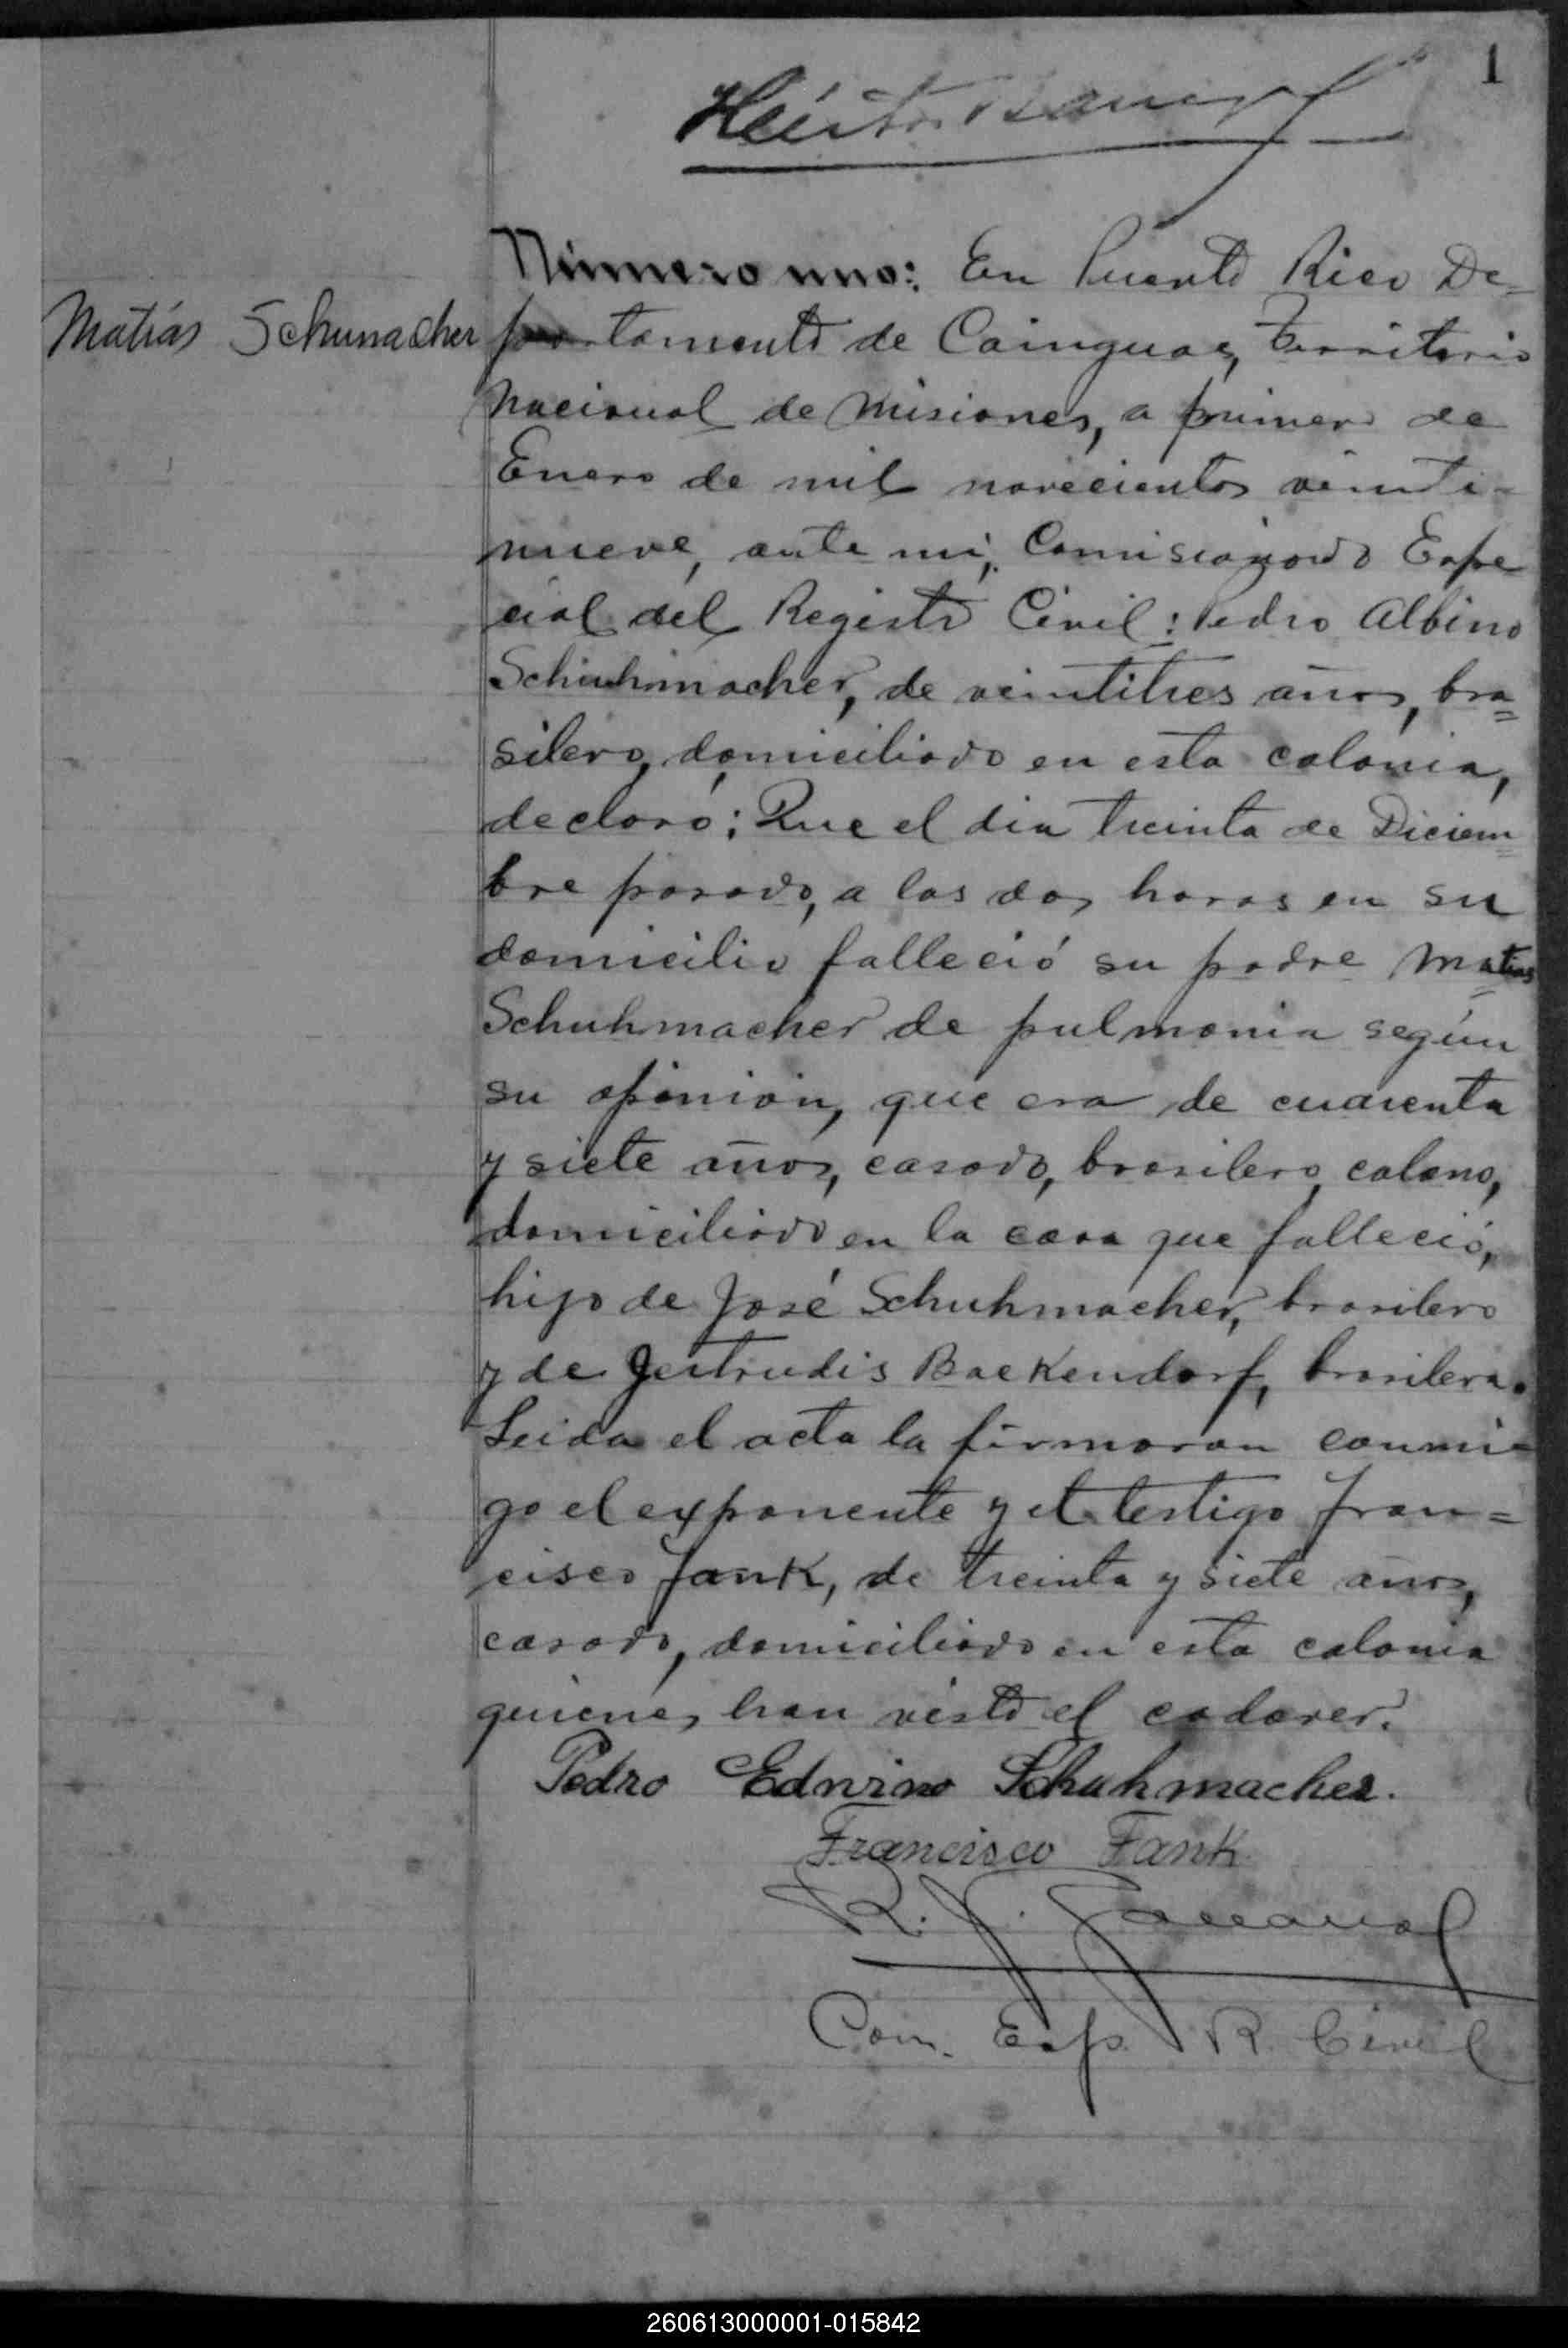 1
Número uno: En Puerto Rico De-
Matías Schumacher
partamento de Cainguas, Territorio
Nacional de Misiones, a primero de
Enero de mil novecientos veinti-
nueve, ante mi, Comisionado Espe
cial del Registro Civil: Pedro Albino
Schuhmacher, de veintitres años, bra=
silero, domiciliado en esta colonia,
declaró: Que el dia treinta de Diciem=
bre pasado, a las dos horas en su
domicilio falleció su padre Matias
Schuhmacher de pulmonia según
su opinión, que era de cuarenta
y siete años, casado, brasilero, colono,
domiciliado en la casa que falleció,
hijo de José Schuhmacher, brasilero
y de Gertrudis Backendorf, brasilera.
Leida el acta la firmaron conmi=
go el exponente y el testigo Fran=
cisco Fank, de treinta y siete años,
casado, domiciliado en esta colonia
quienes han visto el cadaver.
Pedro Edwino Schuhmacher.
Francisco Fank
R. J.
Com. Esp. R. Civil
260613000001-015842